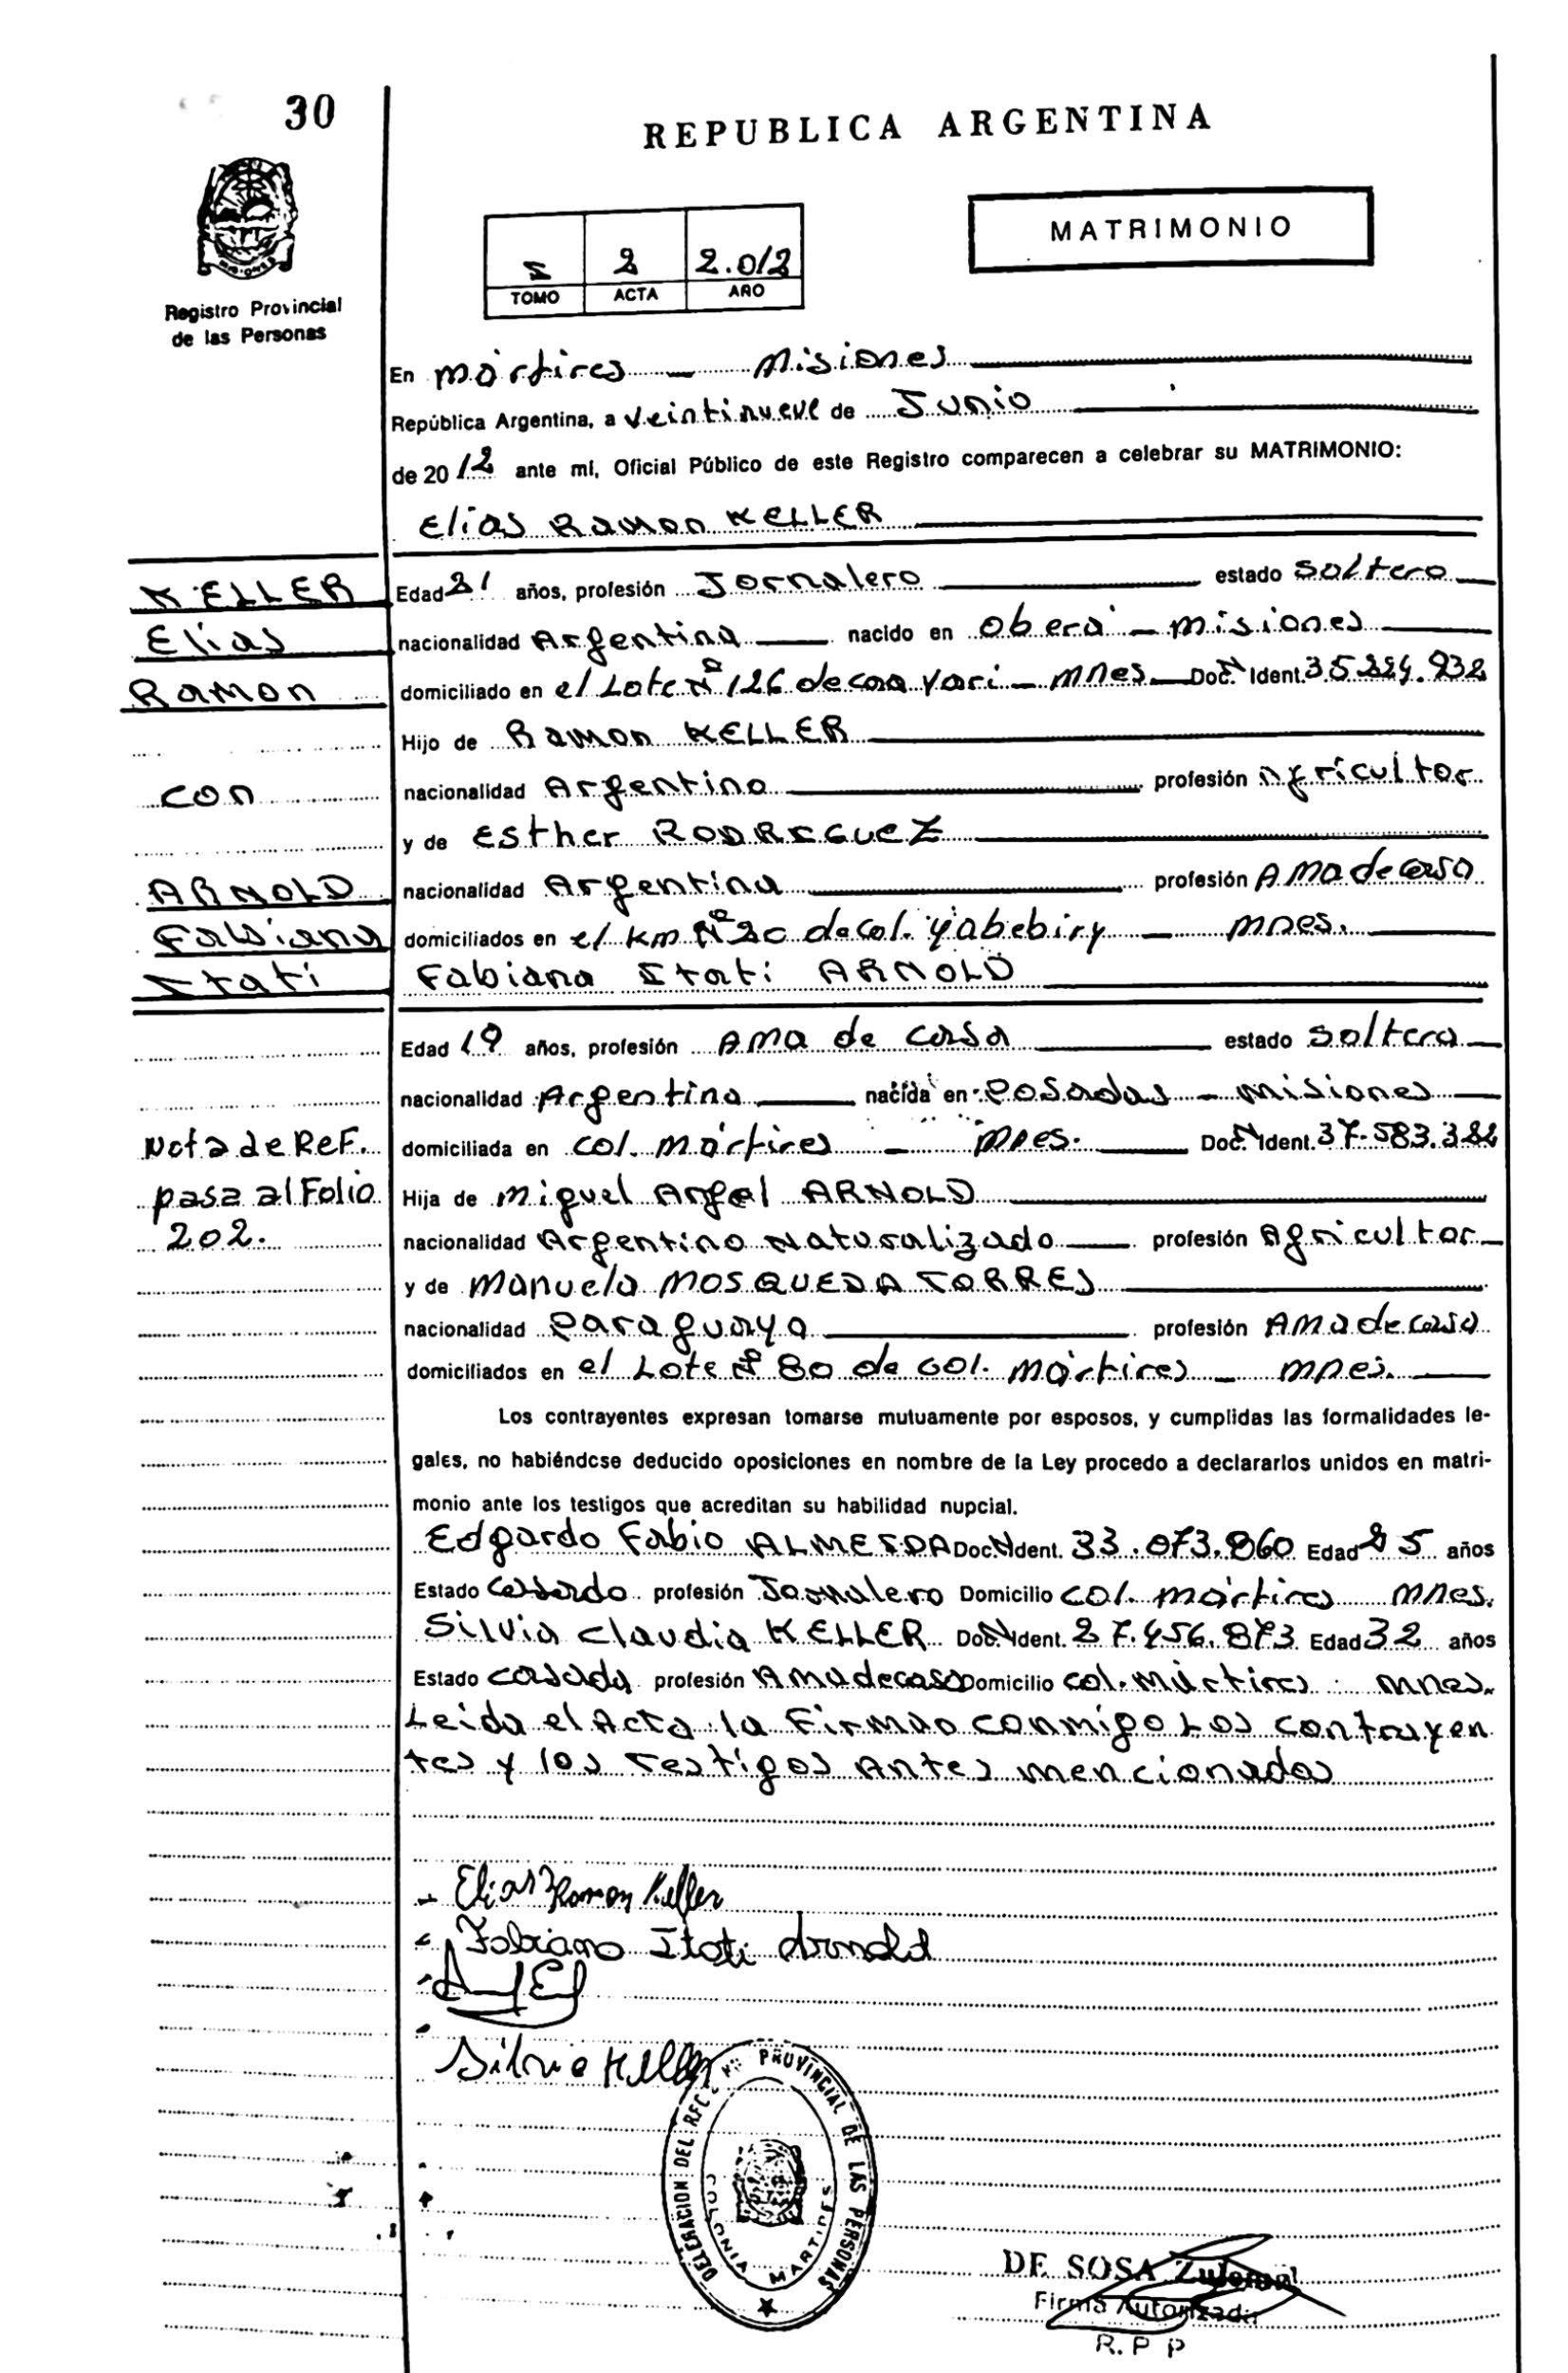 30
REPUBLICA ARGENTINA
MATRIMONIO
I 2 2.012
TOMO ACTA AÑO
Registro Provincial
de las Personas
En Mártires — Misiones
República Argentina, a veintinueve de Junio
de 2012 ante mí, Oficial Público de este Registro comparecen a celebrar su MATRIMONIO:
Elias Ramon KELLER
KELLER
Elias
Ramon
con
ARNOLD
Fabiana
Itati
Edad 21 años, profesión Jornalero estado Soltero
nacionalidad Argentina nacido en Oberá — Misiones
domiciliado en el Lote Nº 126 de Yari — Mnes. Doc. Nº Ident. 35.224.932
Hijo de Ramon KELLER
nacionalidad Argentina profesión Agricultor
y de Esther RODRIGUEZ
nacionalidad Argentina profesión Ama de casa
domiciliados en el Km Nº 20 de Col. Yabebiry — Mnes.
Fabiana Itati ARNOLD
Edad 19 años, profesión Ama de casa estado Soltera
nacionalidad Argentina nacida en Posadas — Misiones
domiciliada en Col. Mártires — Mnes. Doc. Nº Ident. 37.583.382
Nota de Ref.
pasa al Folio
202.
Hija de Miguel Angel ARNOLD
nacionalidad Argentino Naturalizado profesión Agricultor
y de Manuela MOSQUEDA TORRES
nacionalidad Paraguaya profesión Ama de casa
domiciliados en el Lote Nº 80 de Col. Mártires — Mnes.
Los contrayentes expresan tomarse mutuamente por esposos, y cumplidas las formalidades le-
gales, no habiéndose deducido oposiciones en nombre de la Ley procedo a declararlos unidos en matri-
monio ante los testigos que acreditan su habilidad nupcial.
Edgardo Fabio ALMEIDA Doc. Nº Ident. 33.073.860 Edad 25 años
Estado Casado profesión Jornalero Domicilio Col. Mártires Mnes.
Silvia Claudia KELLER Doc. Nº Ident. 27.456.873 Edad 32 años
Estado Casada profesión Ama de casa Domicilio Col. Mártires Mnes.
Leida el Acta la Firman conmigo Los contrayen
tes y los Testigos Antes mencionados
Elias Ramon Keller
Fabiana Itati Arnold
Silvia Keller
DELEGACION DEL REG. PROVINCIAL DE LAS PERSONAS
COLONIA MARTIRES
DE SOSA Zulema
Firma Autorizada
R. P P